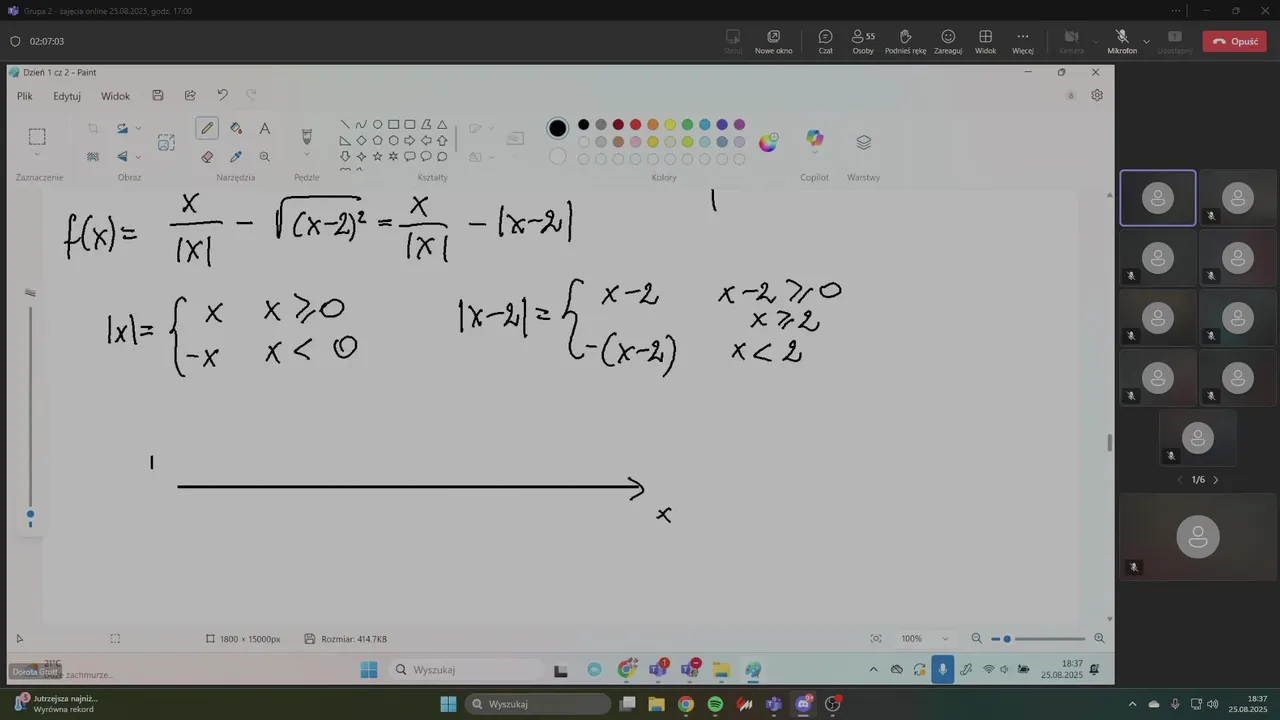 Grupa 2 - zajęcia online 25.08.2025, godz. 17:00
02:07:03
Steruj
Nowe okno
Czat
55
Osoby
Podnieś rękę
Zareaguj
Widok
Więcej
Kamera
Mikrofon
Udostępnij
Opuść
Dzień 1 cz 2 - Paint
Plik
Edytuj
Widok
Zaznaczenie
Obraz
Narzędzia
Pędzle
Kształty
Kolory
Copilot
Warstwy
f(x)= x/|x| - √(x-2)² = x/|x| - |x-2|
|x|= { x x ⩾ 0
-x x < 0
|x-2| = { x-2 x-2 ⩾ 0
x ⩾ 2
-(x-2) x < 2
x
1/6
1800 × 15000px
Rozmiar: 414.7KB
100%
21°C
Wyszukaj
18:37
25.08.2025
Jutrzejsza najniż...
Wyrówna rekord
Wyszukaj
18:37
25.08.2025